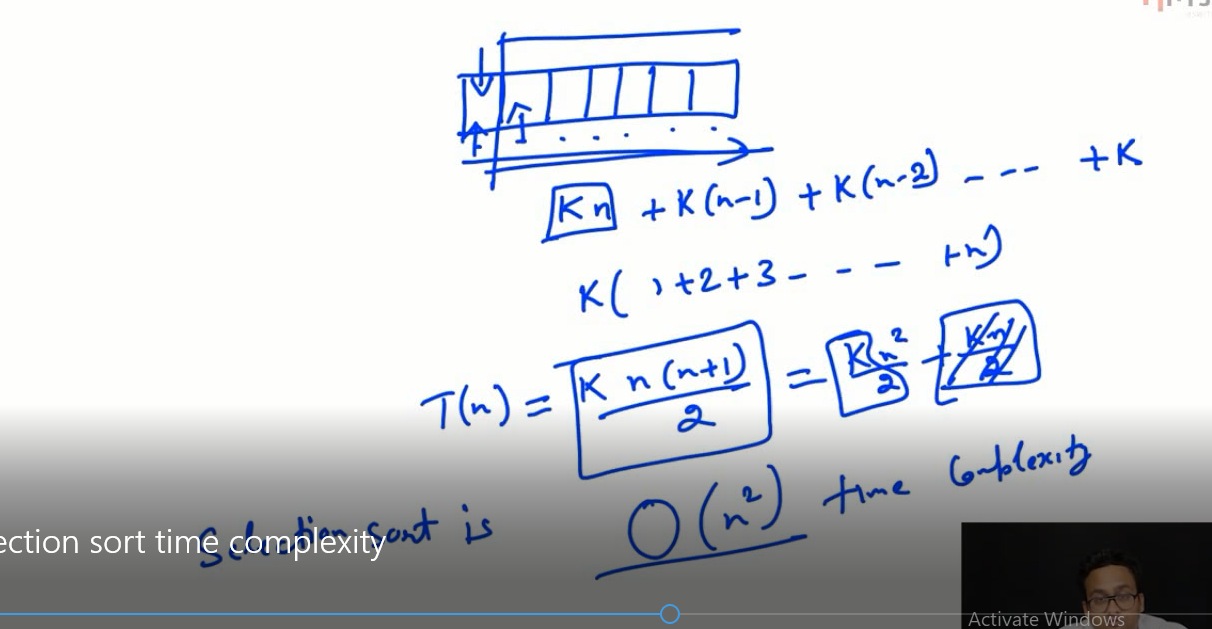 Kn + K(n-1) + K(n-2) - - - - +K
K( 1+2+3 - - - +n)
T(n) = K n(n+1) / 2 = Kn² / 2 + Kn / 2
Selection Sort is O(n²) time Complexity
ection sort time complexity
Activate Windows